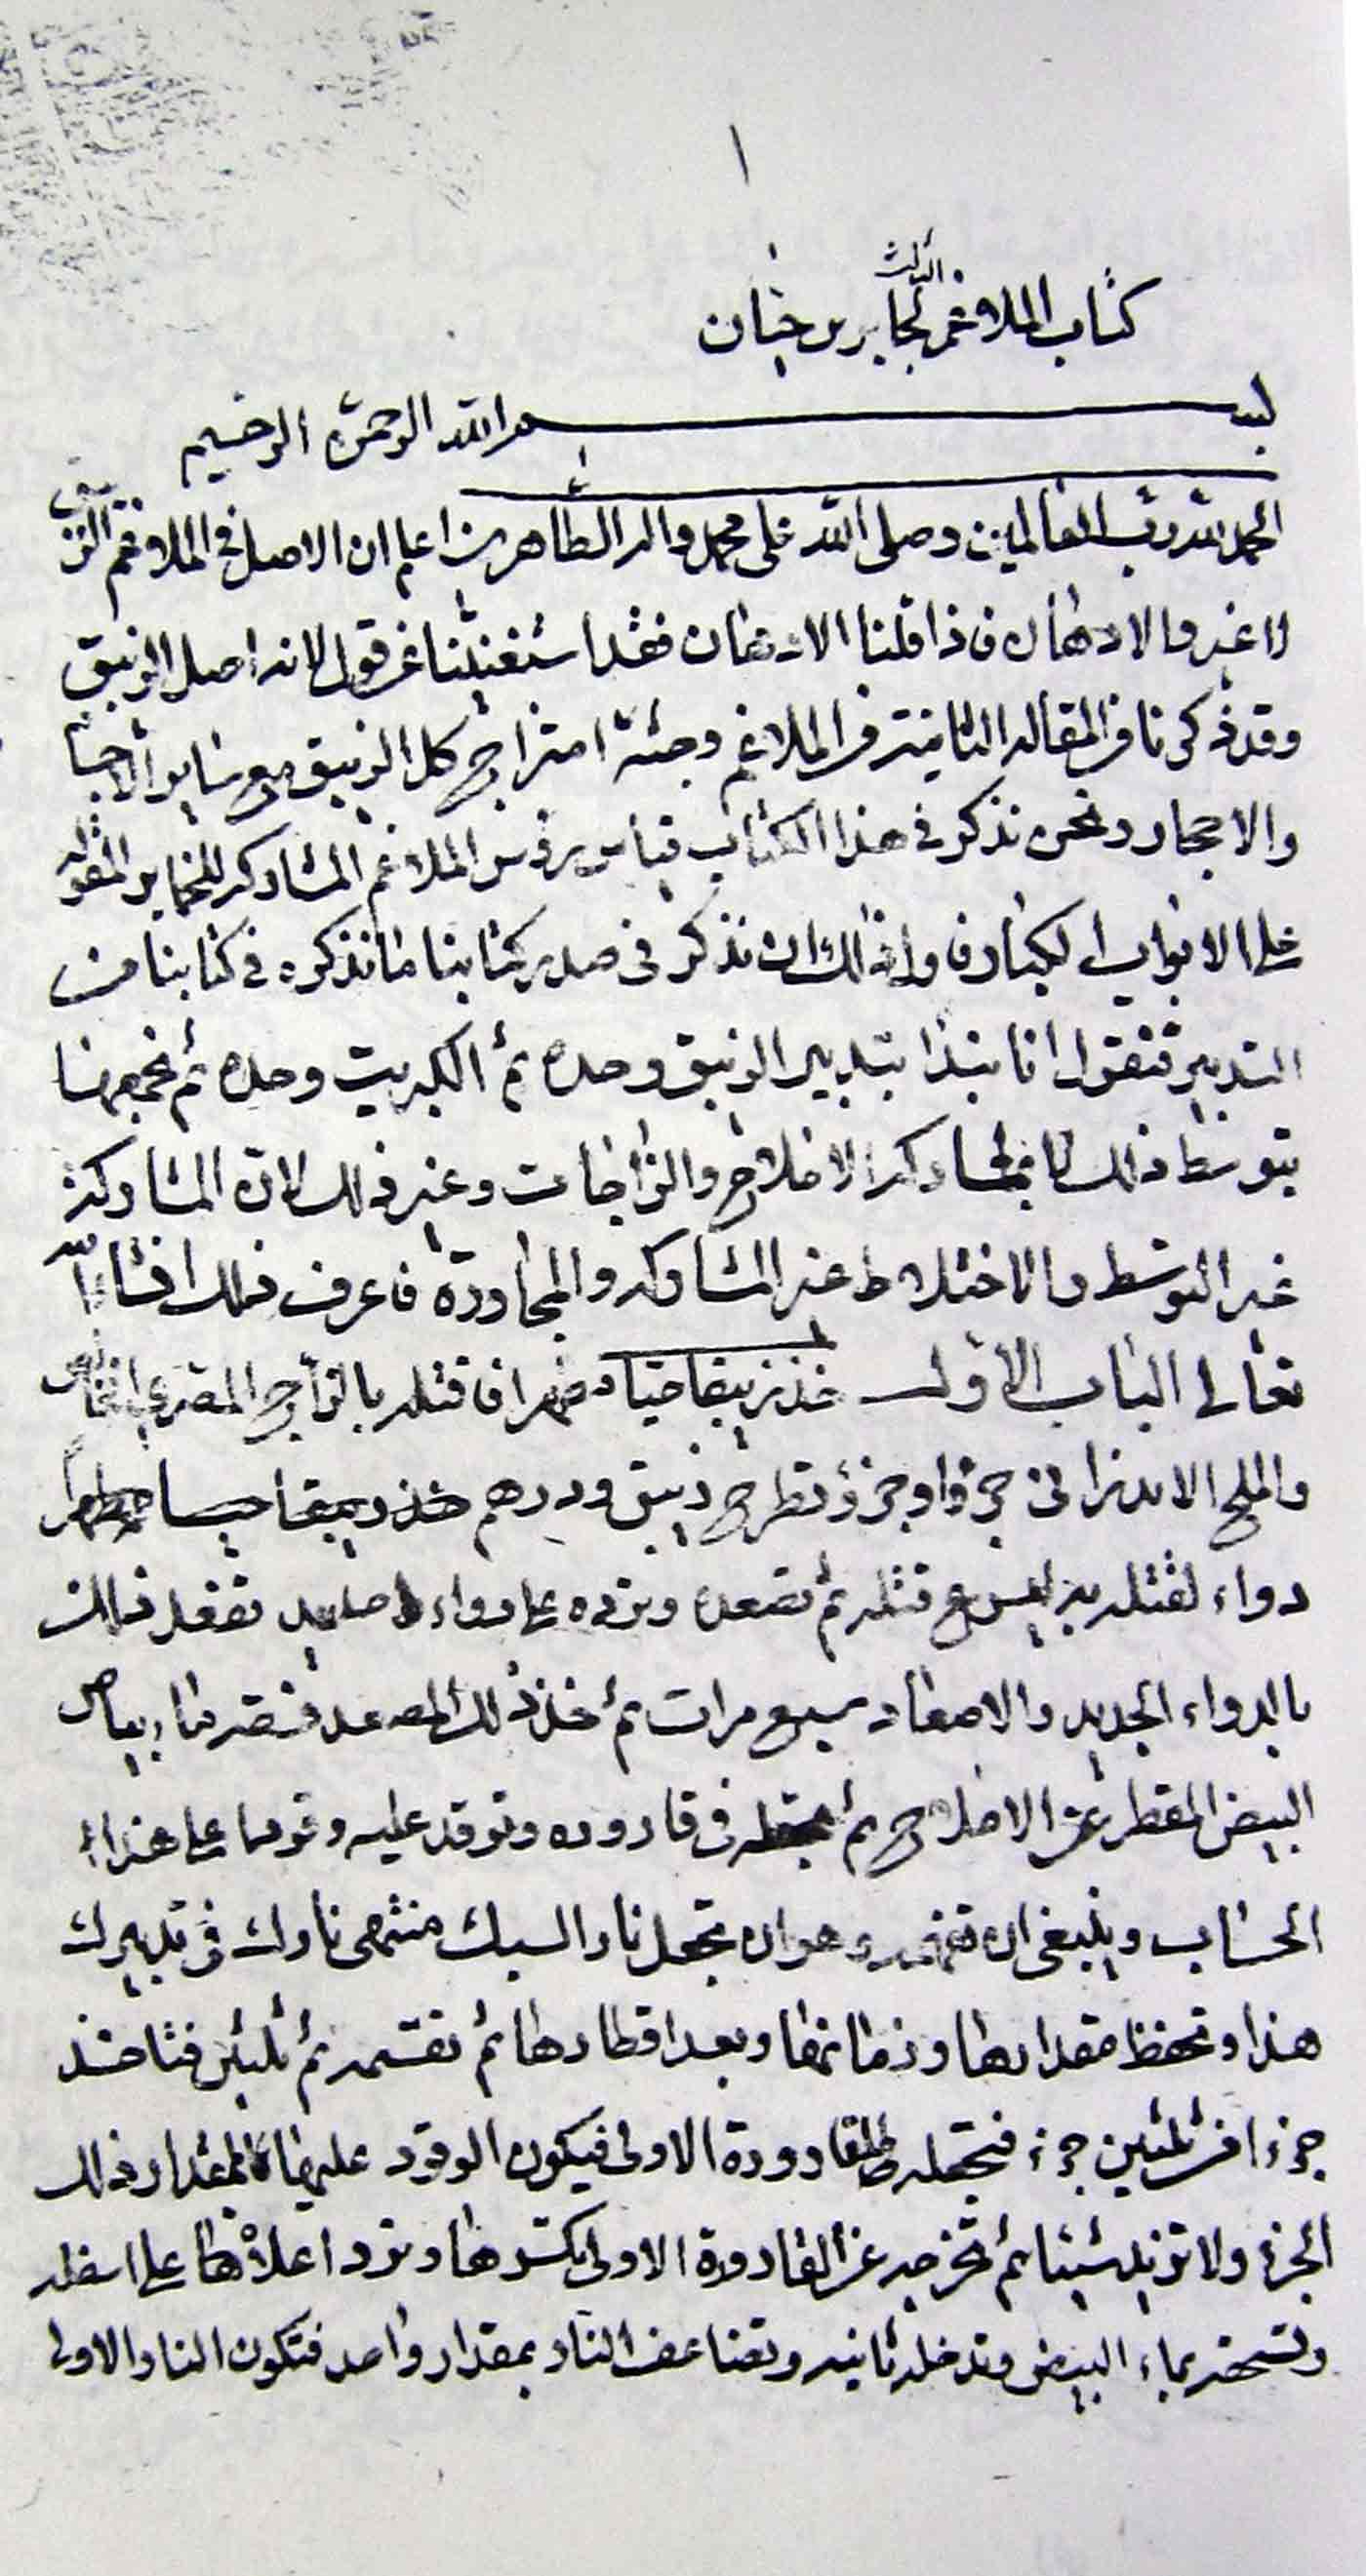 ١
الثالث
كتاب الملاغم لجابر بن حيان
بسم الله الرحمن الرحيم
الحمد لله رب العالمين وصلى الله على محمد واله الطاهرين اعلم ان الاصل في الملاغم الزيبق
لا غير والادهان فاذا قلنا الادهان فقد استغنينا عن قول لانه اصل الزيبق
وقد ذكرنا في المقاله الثانية من الملاغم وجئة امتزاج كل الزيبق مع ساير الاجساد
والاحجار ونحن نذكر في هذا الكتاب من الملاغم المشاركه للخماير المقوله
على الابواب الكبار وان ذلك ان نذكر في صدر كتابنا ما نذكره في كتابنا من
التدبير فنقول انا نبدا بتدبير الزيبق وحده ثم الكبريت وحده ثم نجمعهما
بتوسط ذلك الاملاح والزاجات وغير ذلك لان المشاركة
غير التوسط والاختلاط غير المشاركه والمجاورة فاعرف ذلك انشاء الله
تعالى الباب الاول خذ زيبقا حيا فاقتله بالزاج المصري
والملح الاندراني جزوا وجزؤ وتطرح زيبق ودرهم
دواء لقتله قتله ثم تصعده وترده على دواء جديد تفعل ذلك
بالدواء الجديد والاصعاد سبع مرات ثم خذ ذلك المصعد بياض
البيض المقطر عن الاملاح ثم تجعله في قاروره وتوقد عليه على هذا
الحساب وينبغي ان وهو ان تجعل نار السبك منتهى نارك في تدبيرك
هذا وتحفظ مقدارها وزمانها وبعد اقطارها ثم تقسمه ثم ثلثين فتاخذ
جزءا من ثلثين جزء فتجعله القارورة الاولى فيكون الوقود عليها بمقدار ذلك
الجزء ولا تزيد شيئا ثم تخرجه عن القارورة الاولى بكسرها وترد اعلاها على اسفله
وتسحقه بماء البيض وتدخله ثانيه وتضاعف النار بمقدار واحد فتكون النار الاولى